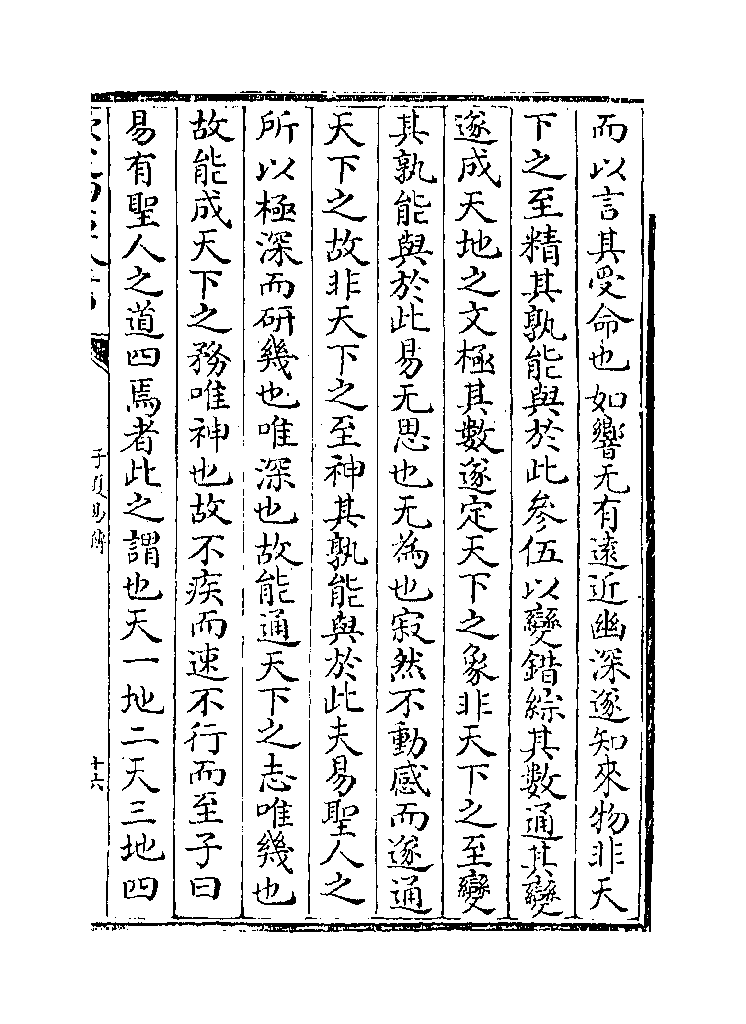 而以言其受命也如響无有遠近幽深遂知來物非天
下之至精其孰能與於此參伍以變錯綜其數通其變
遂成天地之文極其數遂定天下之象非天下之至變
其孰能與於此易无思也无為也寂然不動感而遂通
天下之故非天下之至神其孰能與於此夫易聖人之
所以極深而研幾也唯深也故能通天下之志唯幾也
故能成天下之務唯神也故不疾而速不行而至子曰
易有聖人之道四焉者此之謂也天一地二天三地四
子夏易傳
十六